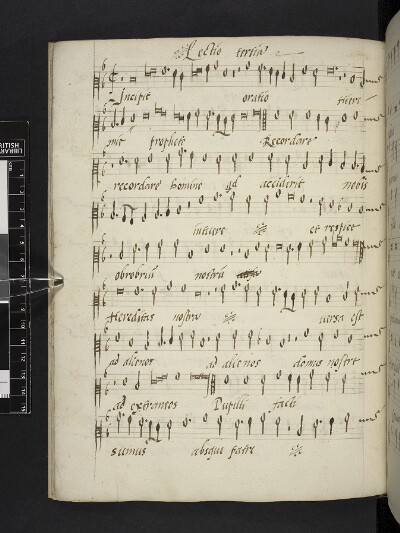 Lectio tertia
Incipit oratio Hiere
mie prophete Recordare
recordare Domine qd acciderit nobis
intuere et respice
obrobriū nostrū
Hereditas nostra versa est
ad alienos ad alienos domus nostre
ad extraneos Pupilli facti
sumus absque patre